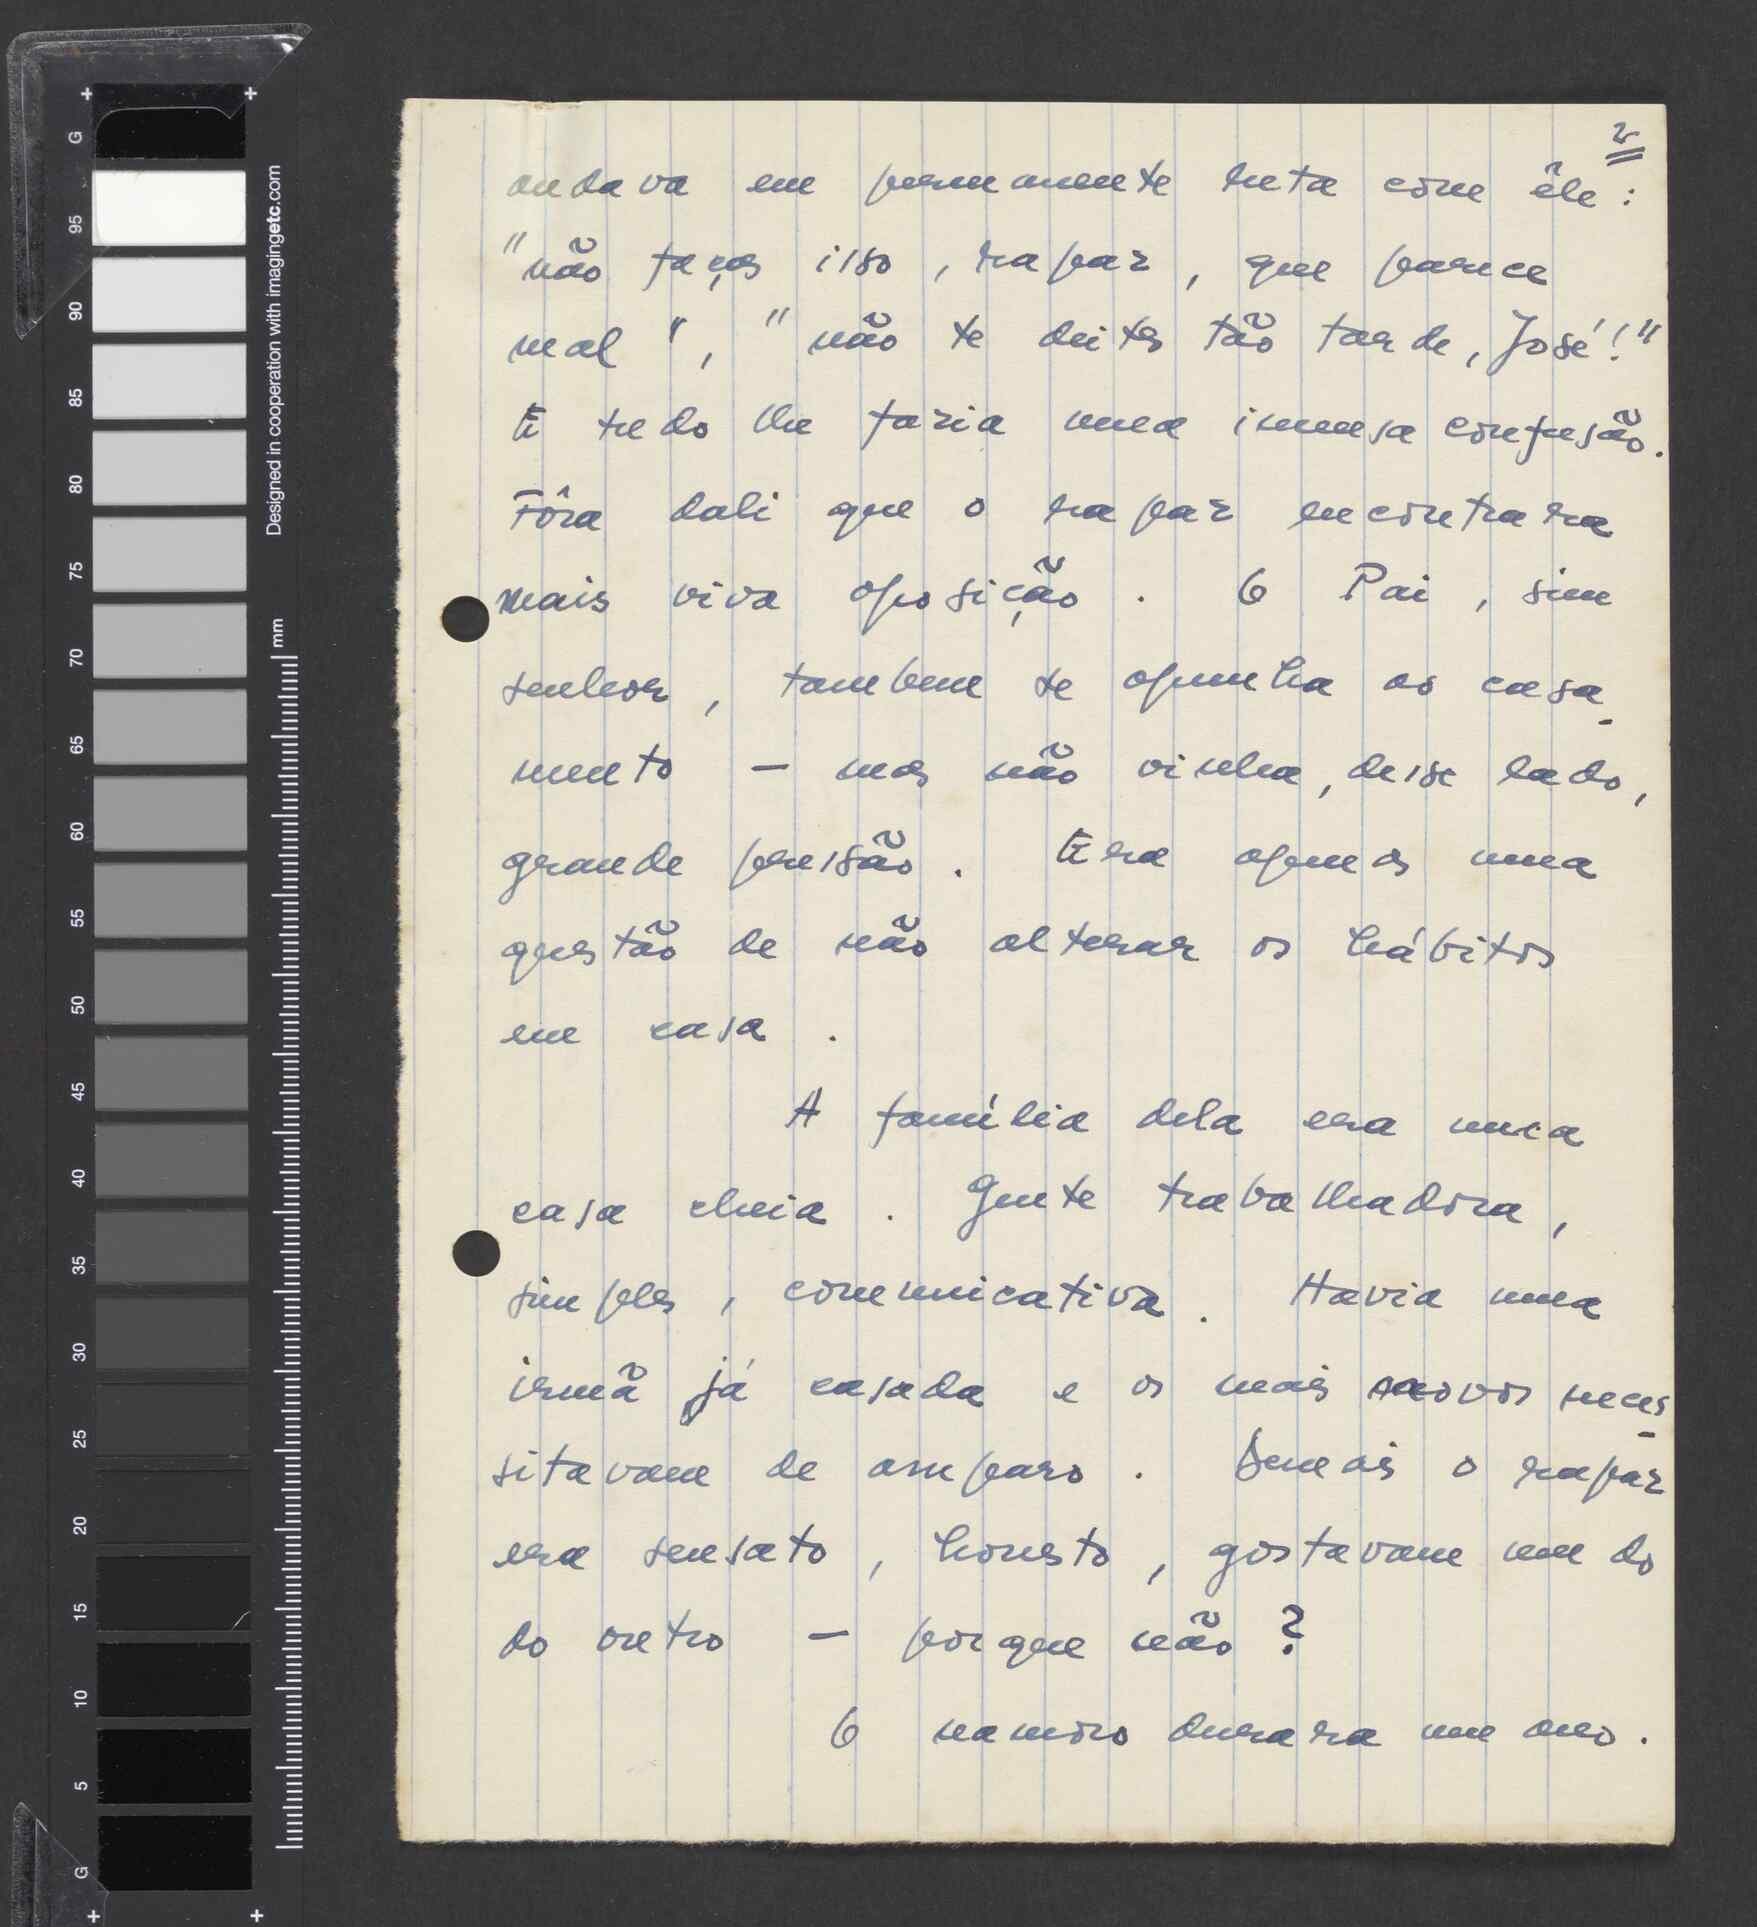 2
andava em permanente luta com êle:
"não faças isso, rapaz, que parece
mal", "não te deites tão tarde, José!"
E tudo lhe fazia uma imensa confusão.
Fôra dali que o rapaz encontrara
mais viva oposição. O Pai, sim
senhor, tambem se opunha ao casa-
mento — mas não vinha, desse lado,
grande pressão. Era apenas uma
questão de não alterar os hábitos
em casa.
A família dela era uma
casa cheia. Gente trabalhadora,
simples, comunicativa. Havia uma
irmã já casada e os mais novos neces-
sitavam de amparo. Demais o rapaz
era sensato, honesto, gostavam um do
do outro — porque não?
O namoro durara um ano.
Designed in cooperation with imagingetc.com
mm
G
95
90
85
80
75
70
65
60
55
50
45
40
35
30
25
20
15
10
5
G